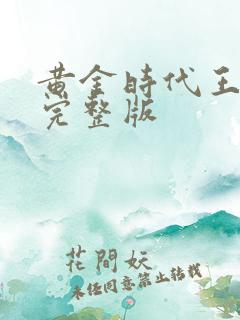 黄金時代王
完整版
花間妖
未经同意禁止转载